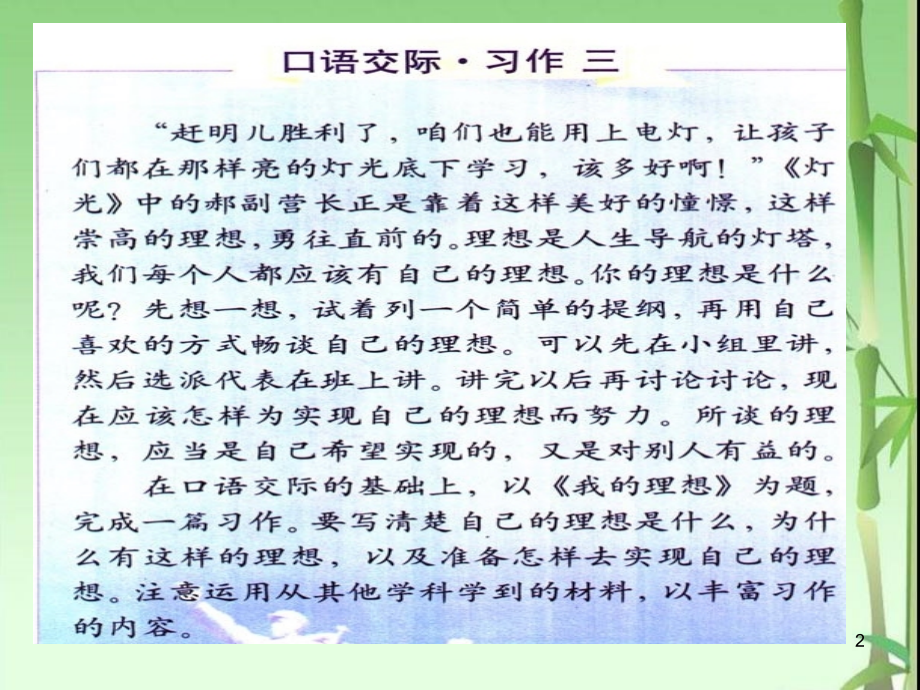 口语交际·习作 三
“赶明儿胜利了，咱们也能用上电灯，让孩子
们都在那样亮的灯光底下学习，该多好啊！”《灯
光》中的郝副营长正是靠着这样美好的憧憬，这样
崇高的理想，勇往直前的。理想是人生导航的灯塔，
我们每个人都应该有自己的理想。你的理想是什么
呢？先想一想，试着列一个简单的提纲，再用自己
喜欢的方式畅谈自己的理想。可以先在小组里讲，
然后选派代表在班上讲。讲完以后再讨论讨论，现
在应该怎样为实现自己的理想而努力。所谈的理
想，应当是自己希望实现的，又是对别人有益的。
在口语交际的基础上，以《我的理想》为题，
完成一篇习作。要写清楚自己的理想是什么，为什
么有这样的理想，以及准备怎样去实现自己的理
想。注意运用从其他学科学到的材料，以丰富习作
的内容。
2